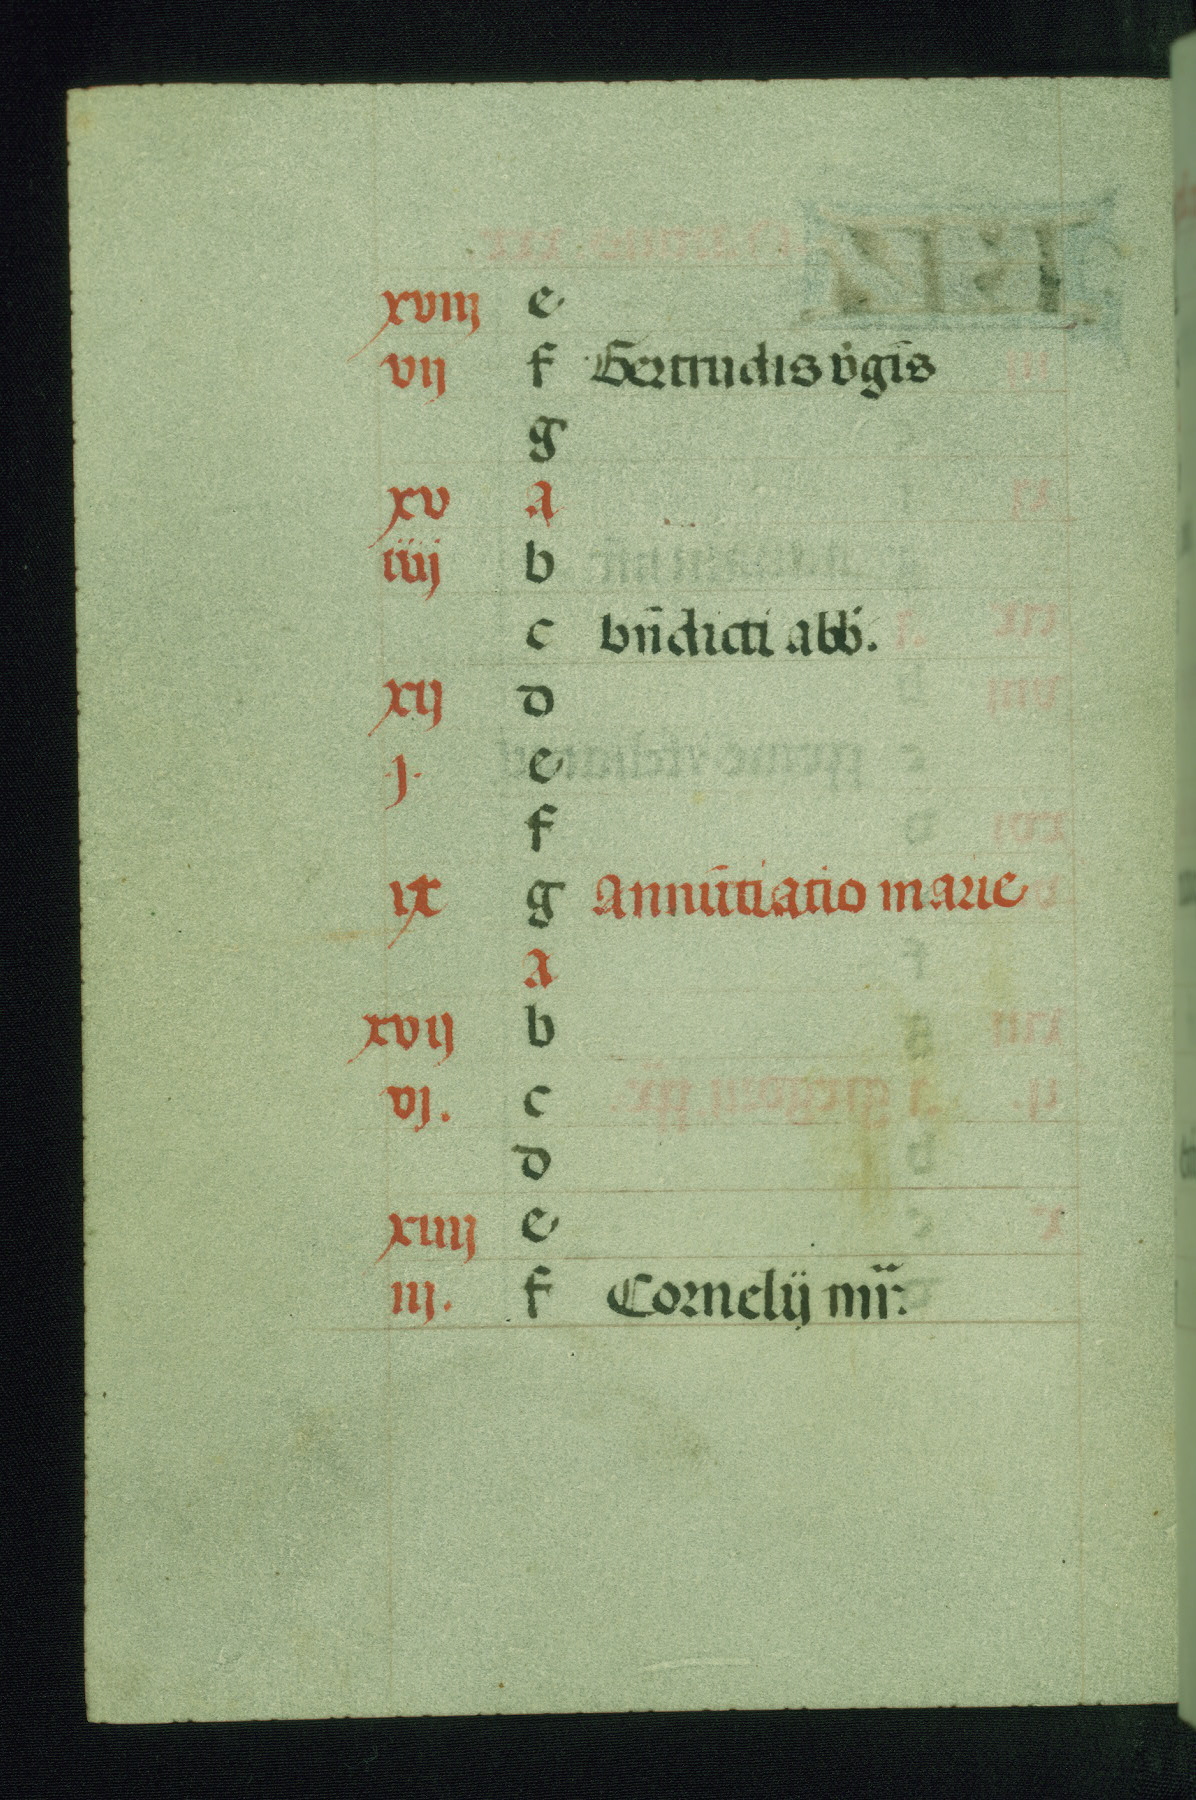 xviij e
vij f Gertrudis v̇gīs
g
xv A
iiij b
c bn̄dicti abb̄.
xij d
.j. e
f
ix g Annūtiatio marie
A
xvij b
vj. c
d
xiiij e
iij. f Cornelij mr̄.